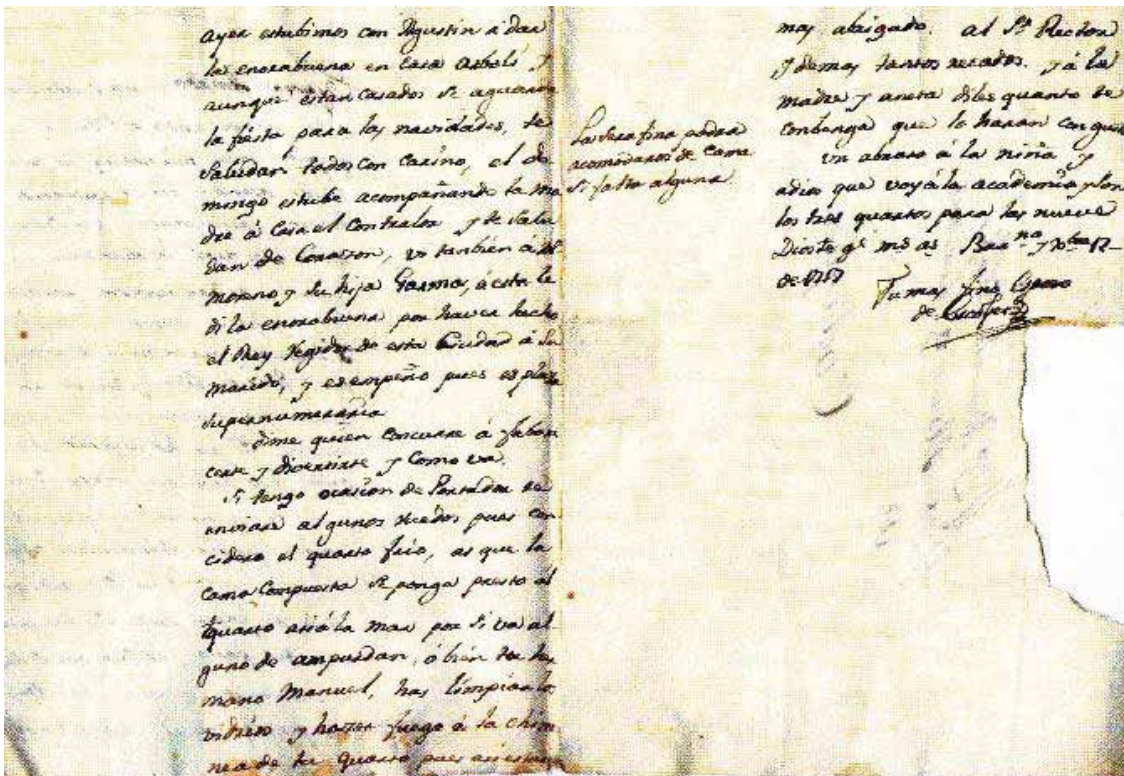 ayer estubimos con Agustin à dar
la enorabuena en casa Asbali y
aunque estan casados se aguarda
la fiesta para las navidades, te
saludan todos con Carino, el do
mingo estube acompañando la ma
dre à Casa el Contralor y te salu
dan de Corazon, vi tanbien a
moreno y su hija Gasma, à esta le
di la enorabuena por haver hecho
el Rey regidor de esta Ciudad à su
marido, y es empeño pues es plaza
supernumeraria
dime quien concurre à fabore
certe y divertirte y como va.
si tengo ocasion de Portador te
enviare algunos ruedos pues con
cidero el quarto frio, as que la
cama Compuesta se ponga presto al
quarto asià la mar por si va al
guno de ampurdan, ò bien tu her
mano Manuel, has limpiar los
vidrios y hazer fuego à la chim
nea de tu quarto pues asi estara
La Serafina podra
acomodaros de Cama
si falta alguna.
mas abrigado. al Sr. Rector
y demas tantos recados. y à la
madre y aneta diles quanto te
conbenga que lo haran con gusto
un abraso à la niña y
adios que voy à la academia y son
los tres quartos para las nueve
Dios te gê ms as Barna y Xbre 12
de 1757
Tu mas fino Esposo
de